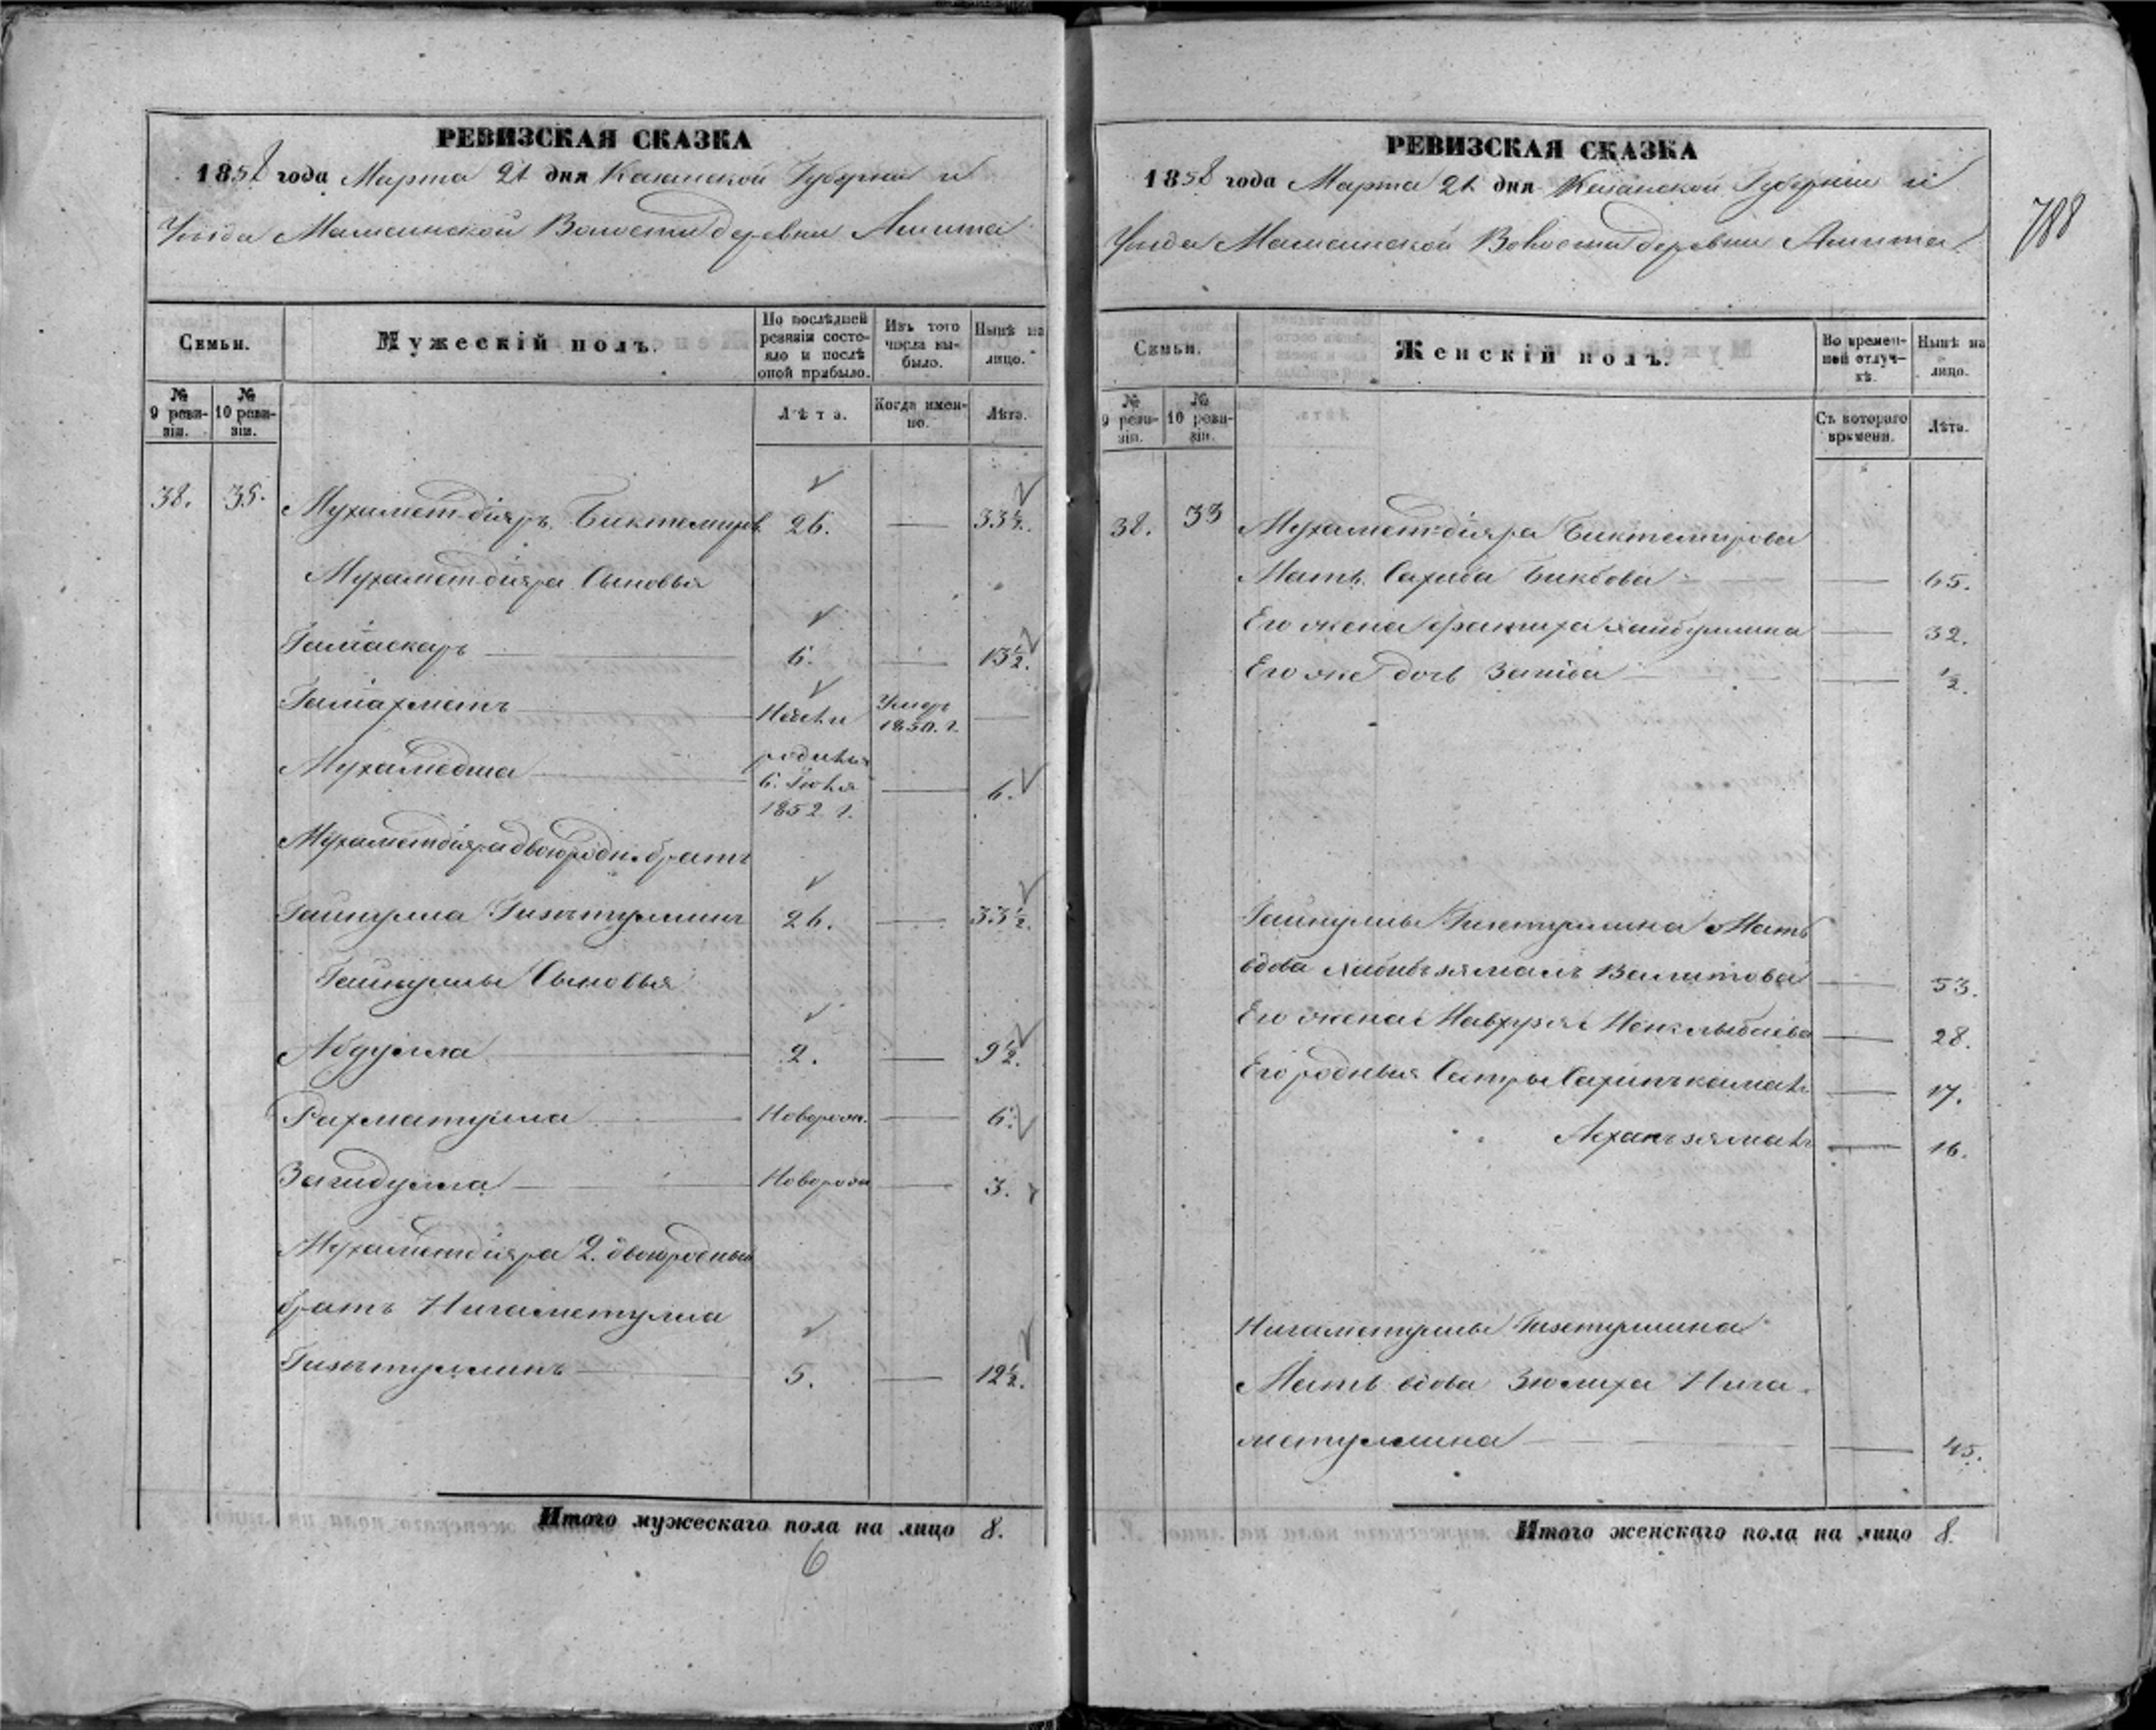 РЕВИЗСКАЯ СКАЗКА
1858 года Марта 21 дня Казанской Губерніи и
Уезда Мамсинской Волости деревни Ашита
Семьи.
Мужескій полъ.
По послѣдней ревизіи состояло и послѣ оной прибыло.
Изъ того числа выбыло.
Нынѣ на лицо.
№ 9 ревизіи.
№ 10 ревизіи.
Лѣта.
Когда именно.
Лѣта.
38. 35. Мухаметдіяръ Биктемиров 26. — 33½.
Мухаметдіяра Сыновья
6. — 13½.
Умеръ 1850. г. —
Мухамедша родился 6. Іюня 1852 г. — 6.
Мухаметдіяра двоюродн. братъ
Гайнулла Гизетуллинъ 26. — 33½.
Гайнуллы Сыновья
Абдулла 2. — 9½.
Рахматулла Новорож. — 6.
Загидулла Новорож — 3.
Мухаметдіяра 2. двоюродный
братъ Нигаметулла
Гизетуллинъ 5. — 12½.
Итого мужескаго пола на лицо 8.
6
788
РЕВИЗСКАЯ СКАЗКА
1858 года Марта 21 дня Казанской Губерніи и
Уезда Мамсинской Волости деревни Ашита
Семьи.
Женскій полъ.
Во временной отлучкѣ.
Нынѣ на лицо.
№ 9 ревизіи.
№ 10 ревизіи.
Съ котораго времени.
Лѣта.
38. 33 Мухаметдіяра Биктемирова
Мать Сахиба — 65.
Его жена Фатиха Хайбуллина — 32.
Его же дочь — ½.
Гайнуллы Гизетуллина Мать
вдова Валитова — 53.
Его жена — 28.
Его родныя Сестры — 17.
— 16.
Нигаметуллы Гизетуллина
Мать вдова Зюлиха Нига-
метуллина — 45.
Итого женскаго пола на лицо 8.